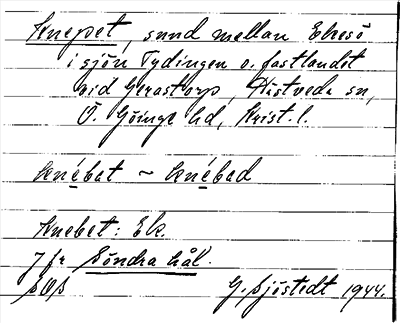 Knepet, sund mellan Ekesö
i sjön Tydingen o. fastlandet
vid Gerastorp, Hästveda sn,
Ö. Göinge hd, Krist. l.
knébat ~ knébad
Knebet: Ek.
Jfr Söndra hål.
SOS G. Sjöstedt 1944.